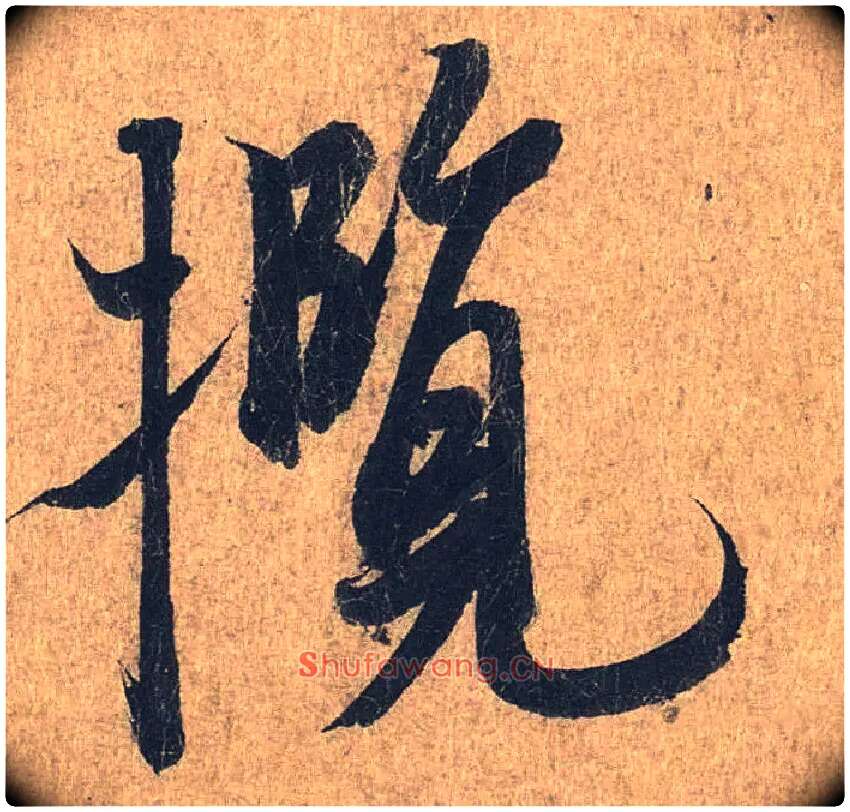 攬
Shufawang.CN